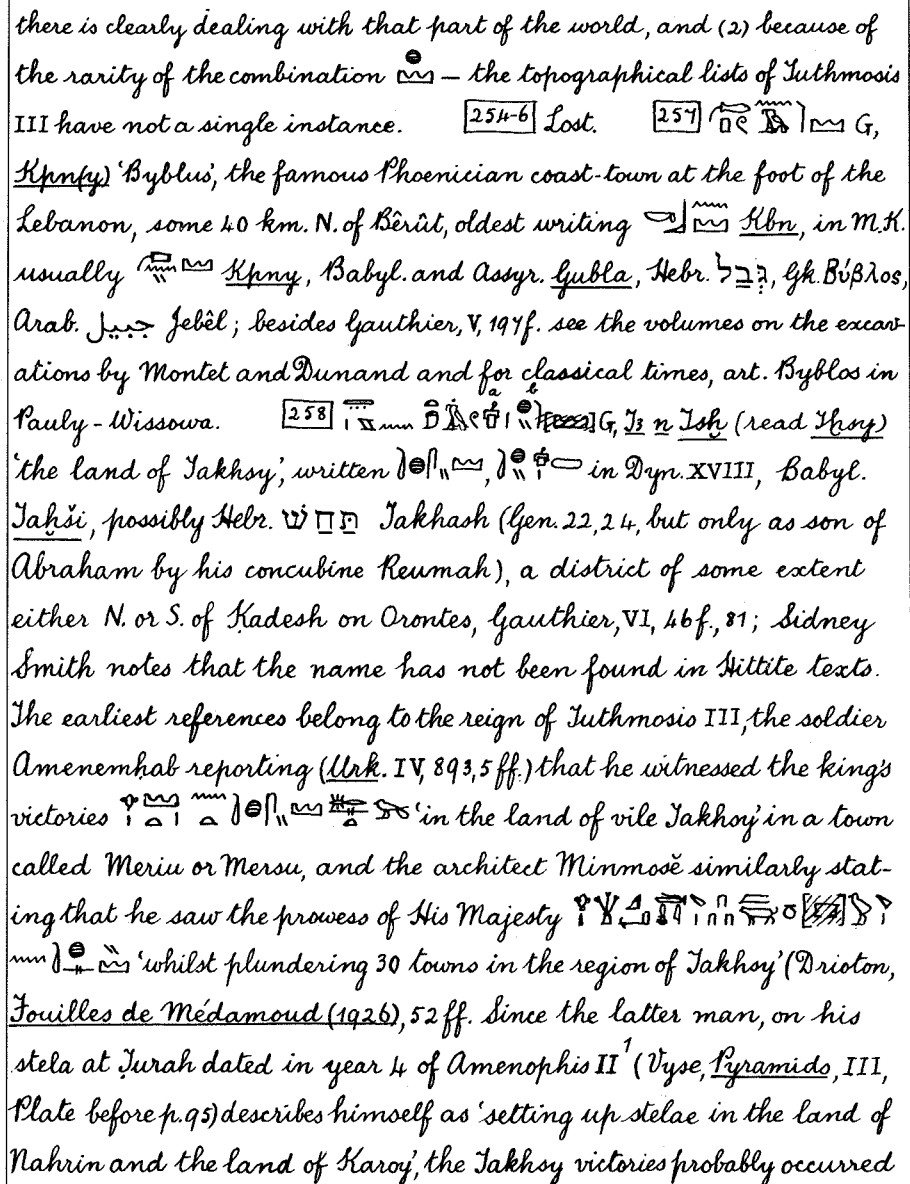 there is clearly dealing with that part of the world, and (2) because of
the rarity of the combination — the topographical lists of Tuthmosis
III have not a single instance. 254-6 Lost. 257 G,
Kpn(y) ‘Byblus’, the famous Phoenician coast-town at the foot of the
Lebanon, some 40 km. N. of Bêrût, oldest writing Kbn, in M.K.
usually Kpny, Babyl. and Assyr. Gubla, Hebr. גְּבַל, Gk. Βύβλος,
Arab. جبيل Jebêl; besides Gauthier, V, 197f. see the volumes on the excav-
ations by Montet and Dunand and for classical times, art. Byblos in
Pauly-Wissowa. 258 a b G, Tꜣ n Tsḫ (read Tḫsy)
‘the land of Takhsy’, written , in Dyn. XVIII, Babyl.
Taḫši, possibly Hebr. תַּחַשׁ Takhash (Gen. 22, 24, but only as son of
Abraham by his concubine Reumah), a district of some extent
either N. or S. of Ḳadesh on Orontes, Gauthier, VI, 46f., 81; Sidney
Smith notes that the name has not been found in Hittite texts.
The earliest references belong to the reign of Tuthmosis III, the soldier
Amenemhab reporting (Urk. IV, 893, 5 ff.) that he witnessed the king's
victories ‘in the land of vile Takhsy’ in a town
called Meriu or Mersu, and the architect Minmosĕ similarly stat-
ing that he saw the prowess of His Majesty
‘whilst plundering 30 towns in the region of Takhsy’ (Drioton,
Fouilles de Médamoud (1926), 52 ff. Since the latter man, on his
stela at Ṭurah dated in year 4 of Amenophis II¹ (Vyse, Pyramids, III,
Plate before p. 95) describes himself as ‘setting up stelae in the land of
Nahrin and the land of Karoy’, the Takhsy victories probably occurred